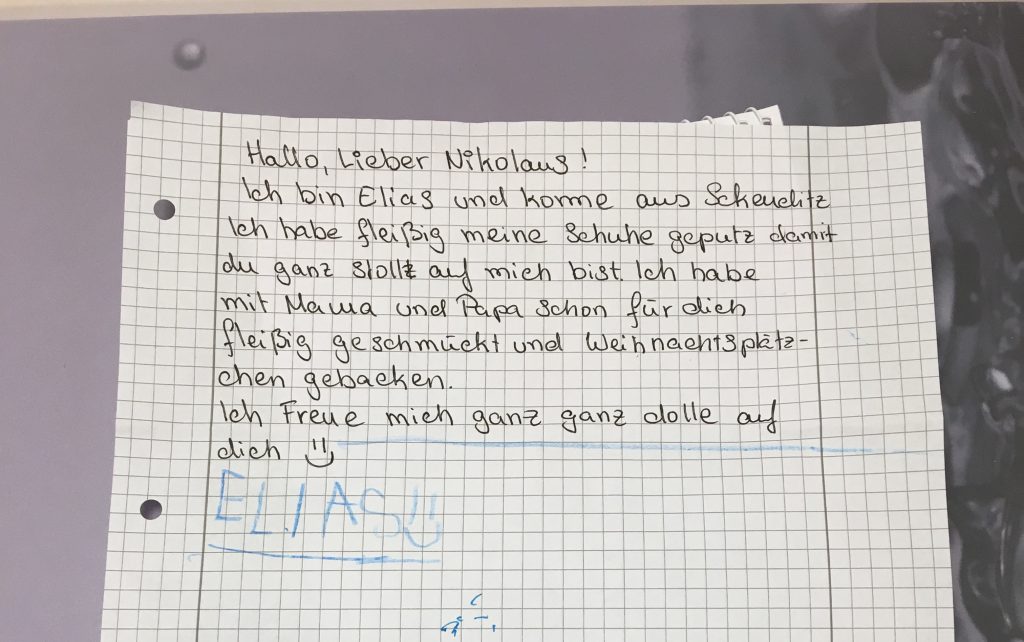 Hallo, Lieber Nikolaus!
Ich bin Elias und komme aus Skeuditz
Ich habe fleißig meine Schuhe geputz damit
du ganz stollz auf mich bist. Ich habe
mit Mama und Papa schon für dich
fleißig geschmückt und Weihnachtsplätz-
chen gebacken.
Ich Freue mich ganz ganz dolle auf
dich
ELIAS